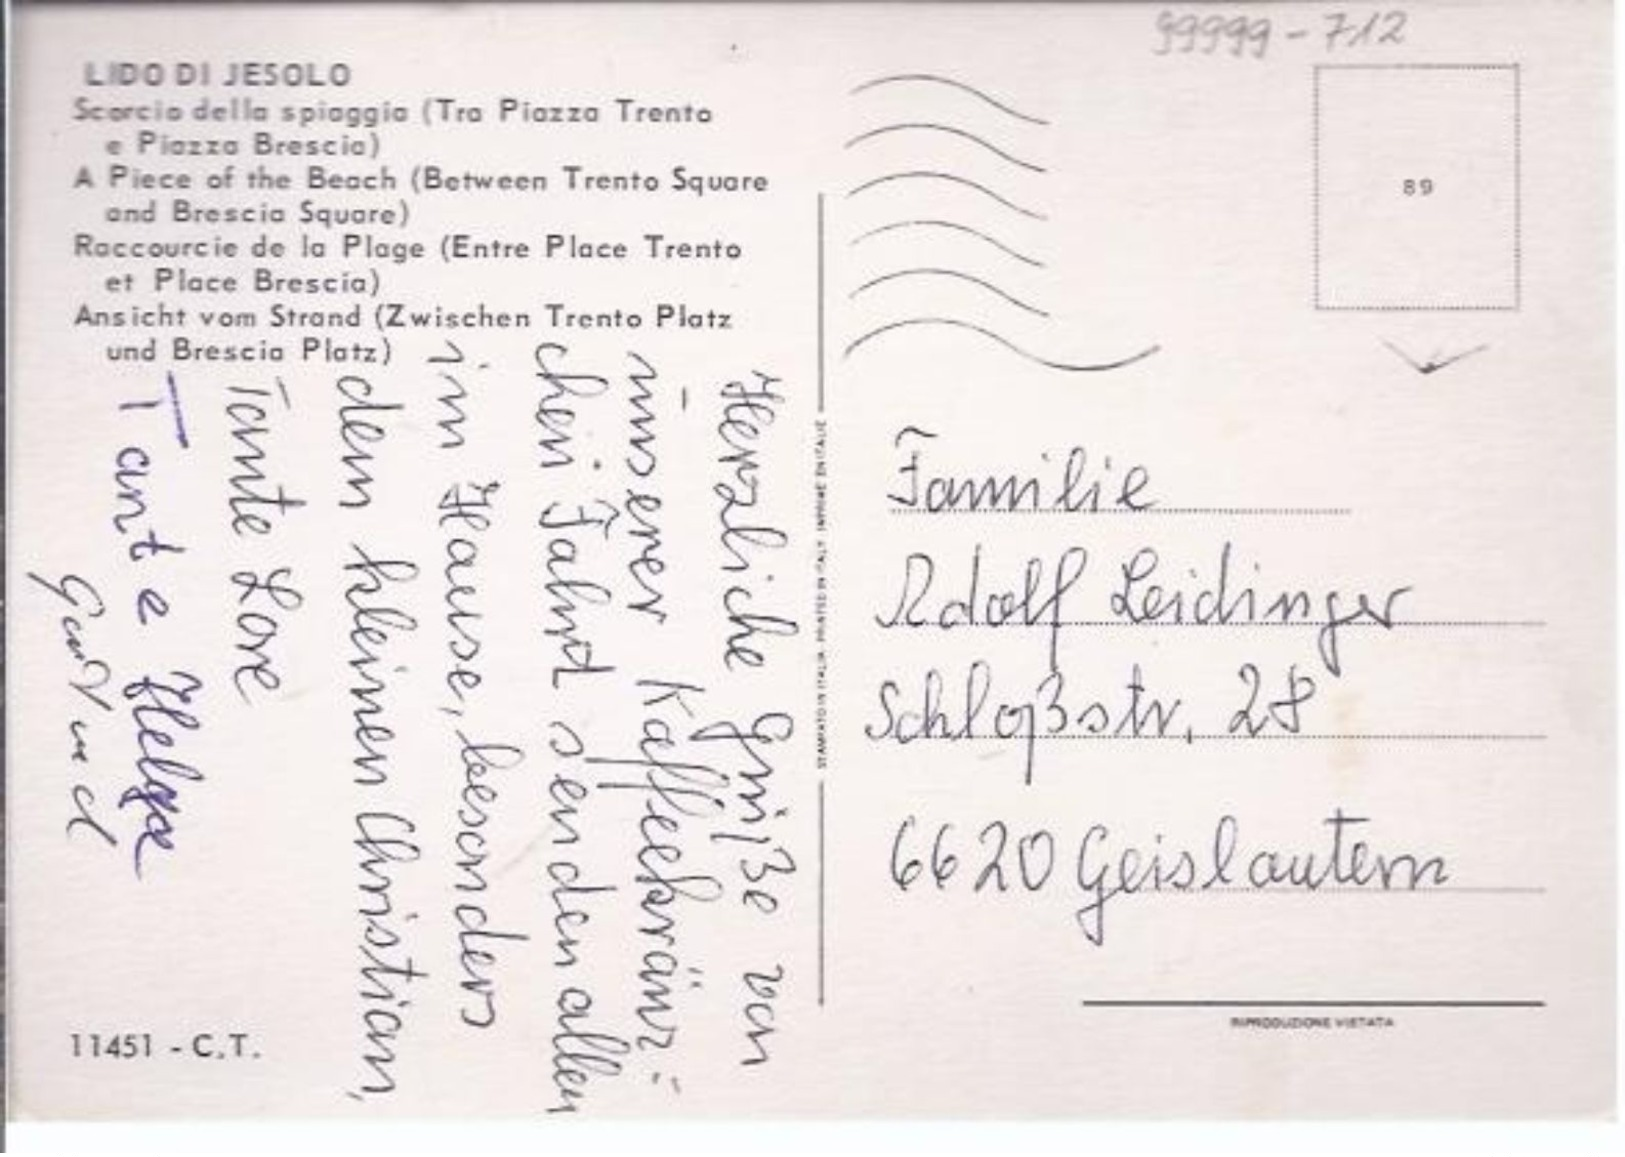 99999-712
LIDO DI JESOLO
Scorcio della spiaggia (Tra Piazza Trento
e Piazza Brescia)
A Piece of the Beach (Between Trento Square
and Brescia Square)
Raccourcie de la Plage (Entre Place Trento
et Place Brescia)
Ansicht vom Strand (Zwischen Trento Platz
und Brescia Platz)
Herzliche Grüße von
unserer Kaffeekränz-
chen Fahrt senden allen
im Hause, besonders
dem kleinen Christian,
Tante Lore
Tante Helga
11451 - C.T.
STAMPATO IN ITALIA PRINTED IN ITALY IMPRIMÉ EN ITALIE
89
Familie
Adolf Leidinger
Schloßstr. 28
6620 Geislautern
RIPRODUZIONE VIETATA